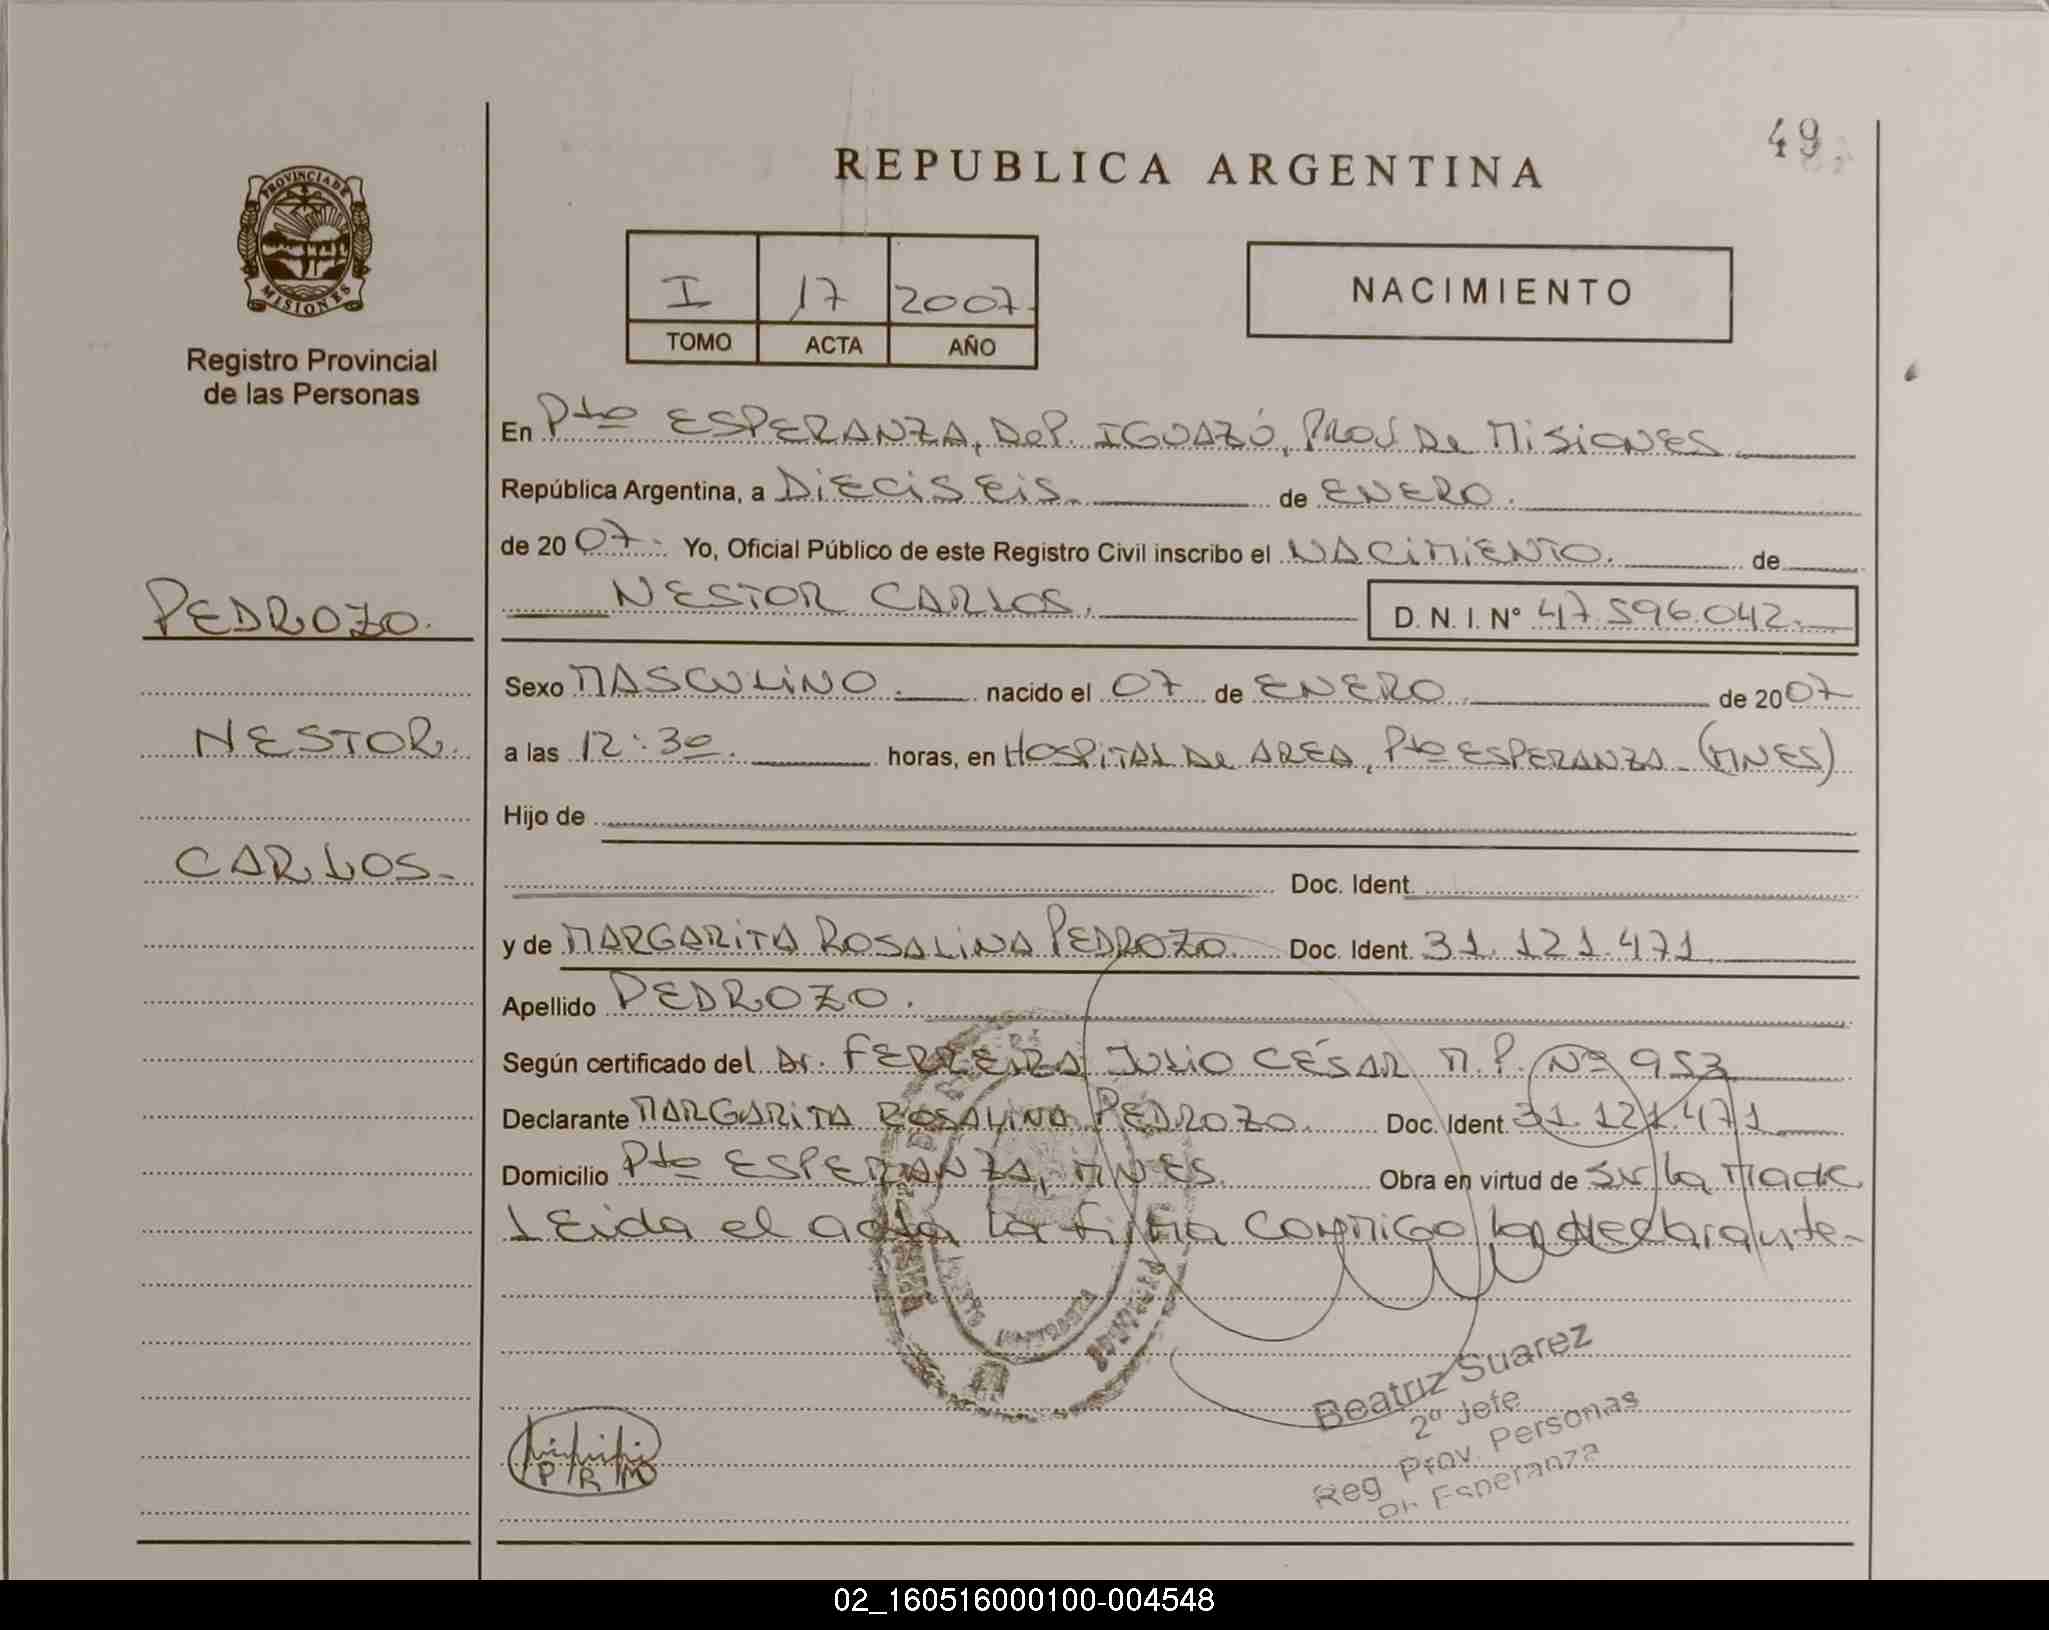 49
REPUBLICA ARGENTINA
PROVINCIA DE
MISIONES
Registro Provincial
de las Personas
I 17 2007.
TOMO ACTA AÑO
NACIMIENTO
En Pto ESPERANZA, DeP. IGUAZÚ, PROV De MISIONES
República Argentina, a DIECISEIS. de ENERO.
de 2007. Yo, Oficial Público de este Registro Civil inscribo el NACIMIENTO. de
PEDROZO.
NESTOR CARLOS. D. N. I. N° 47.596.042.
Sexo MASCULINO. nacido el 07 de ENERO. de 2007
NESTOR.
a las 12:30. horas, en HOSPITAL De AREA, Pto ESPERANZA - (MNES)
Hijo de
CARLOS.
Doc. Ident.
y de MARGARITA ROSALINA PEDROZO. Doc. Ident. 31.121.471
Apellido PEDROZO.
Según certificado del Dr. FERREIRA JULIO CÉSAR M.P. Nº 953
Declarante MARGARITA ROSALINA PEDROZO. Doc. Ident. 31.121.471
Domicilio Pto ESPERANZA, MNES. Obra en virtud de Ser la Madre
Leida el acta la firma conmigo la declarante-
Beatriz Suarez
2º Jefe
Reg Prov. Personas
Esperanza
P R M
02_160516000100-004548